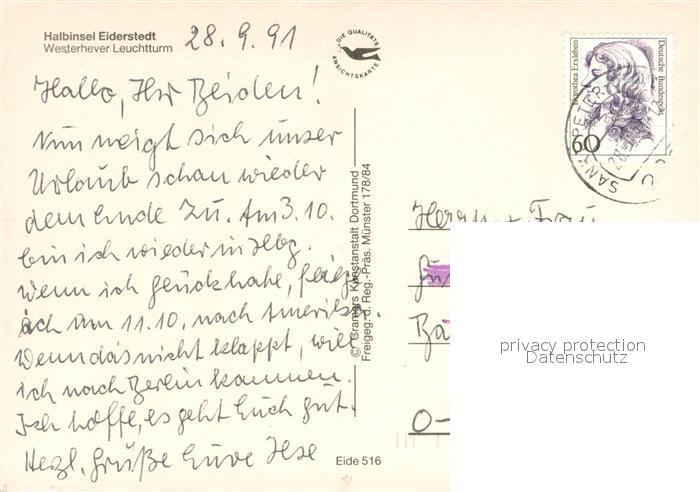 Halbinsel Eiderstedt
Westerhever Leuchtturm
28.9.91
DIE QUALITÄTS
ANSICHTSKARTE
Dorothea Erxleben
Deutsche Bundespost
60
SANKT PETER
Hallo, Ihr Beiden!
Nun neigt sich unser
Urlaub schon wieder
dem Ende zu. Am 3.10.
bin ich wieder in Hbg.
Wenn ich Glück habe, fliege
ich am 11.10. nach Amerika.
Wenn das nicht klappt, will
ich nach Berlin kommen.
Ich hoffe, es geht Euch gut.
Herzl. Grüße Eure Ilse
© Cramers Kunstanstalt Dortmund
Freigeg. d. Reg.-Präs. Münster 178/84
Eide 516
Herrn + Frau
O-
privacy protection
Datenschutz